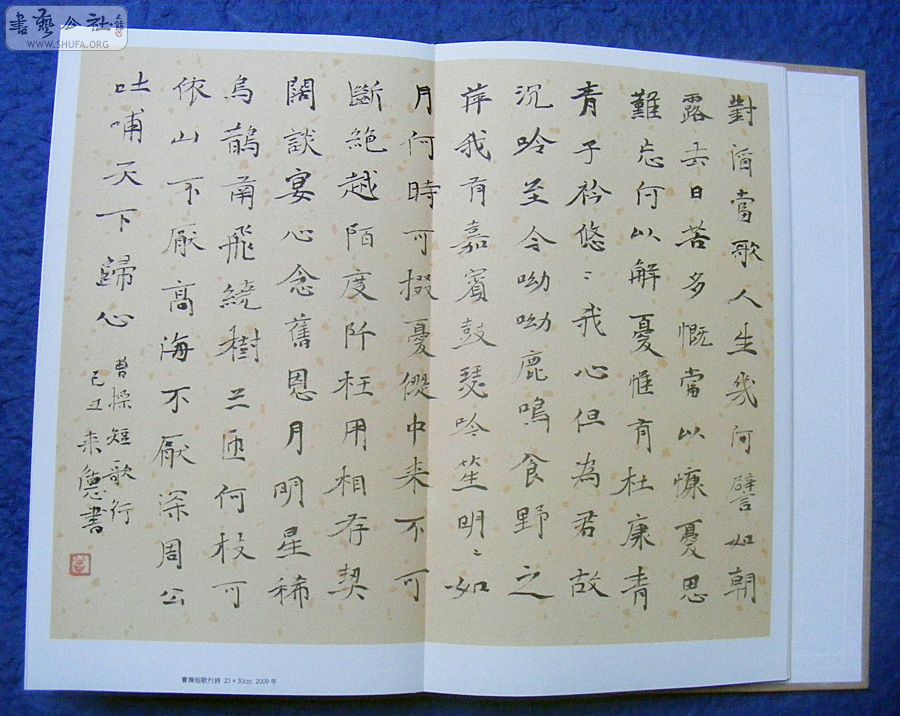 對酒當歌人生幾何譬如朝
露去日苦多慨當以慷憂思
難忘何以解憂惟有杜康青
青子衿悠〻我心但為君故
沉吟至今呦呦鹿鳴食野之
苹我有嘉賓鼓瑟吹笙明〻如
月何時可掇憂從中来不可
斷絕越陌度阡枉用相存契
闊談宴心念舊恩月明星稀
烏鵲南飛繞樹三匝何枝可
依山不厭高海不厭深周公
吐哺天下歸心
曹操短歌行
己丑来德書
曹操短歌行詩 25×30cm 2009年
書藝公社
WWW.SHUFA.ORG